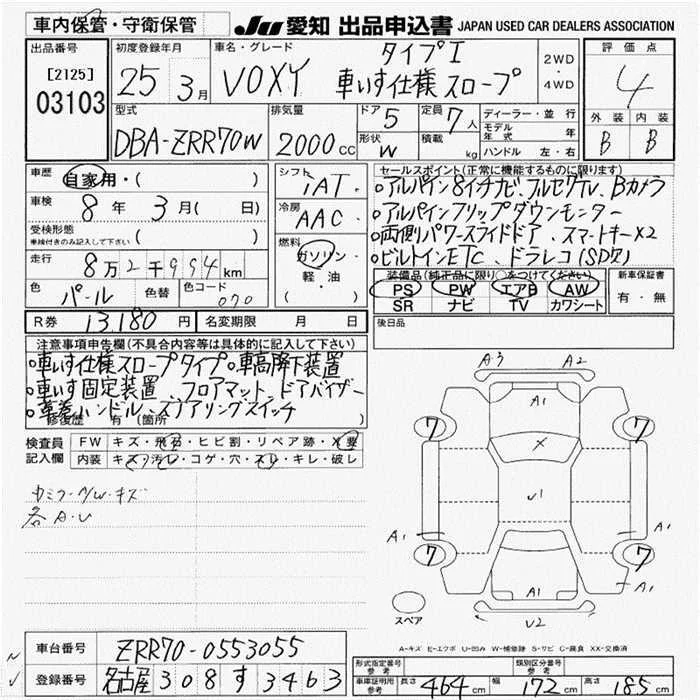 車内保管・守衛保管
JU 愛知 出品申込書 JAPAN USED CAR DEALERS ASSOCIATION
出品番号
[2125]
03103
初度登録年月
25 3月
車名・グレード
VOXY
タイプI
車いす仕様スロープ
2WD
・
4WD
評価点
4
外装 内装
B B
型式
DBA-ZRR70W
排気量
2000 cc
ドア
5
形状
W
定員
7人
積載
kg
ディーラー・並行
モデル年式 年
ハンドル 左・右
車歴
自家用・( )
車検
8年 3月( 日)
受検形態
車検付きのみ記入して下さい ( )
走行
8万2千994km
色
パール
色替
色コード
070
シフト
iAT
冷房
AAC
燃料
ガソリン・
軽・油
( )
セールスポイント(正常に機能するものに限ります)
○アルパイン8イチナビ、フルセグTV、Bカメラ
○アルパインフリップダウンモニター
○両側パワースライドドア、スマートキーX2
○ビルトインETC、ドラレコ(SD欠)
装備品(純正品に限り○をつけてください)
PS PW エアB AW
SR ナビ TV カワシート
新車保証書
有・無
R券 13,180円
名変期限 月 日
後日品
注意事項申告欄(不具合内容等は具体的に記入して下さい)
○車いす仕様スロープタイプ○車高降下装置
○車いす固定装置、フロアマット、ドアバイザー
○革巻ハンドル、ステアリングスイッチ
修復歴 有(箇所 )
検査員
記入欄
FW キズ・飛石・ヒビ割・リペア跡・X要
内装 キズ・汚レ・コゲ・穴・スレ・キレ・破レ
カミラー/W・キズ
各A・U
A3 A2
A1
7 7
X
U1
A1 A1
7 7
A1
スペア
U2
A-キズ E-エクボ U-凹み W-補修跡 S-サビ C-腐食 XX-交換済
車台番号
ZRR70-0553055
登録番号
名古屋 308 す 3463
形式指定番号
参考
類別区分番号
参考
車庫証明用
参考
長さ 464cm 幅 172cm 高さ 185cm